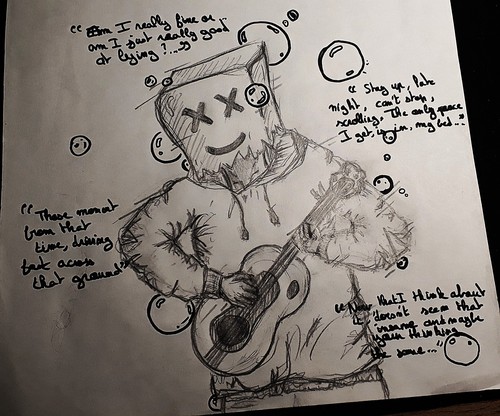 "Am I really fine or
am I just really good
at lying?..."
"Stay up, late
night, can't stop,
scrolling. The only peace
I get, is in, my bed..."
"Those moment
from that
time, driving
fast across
that ground"
"Now that I think about
it doesn't seem that
insane and maybe
your thinking
the same..."